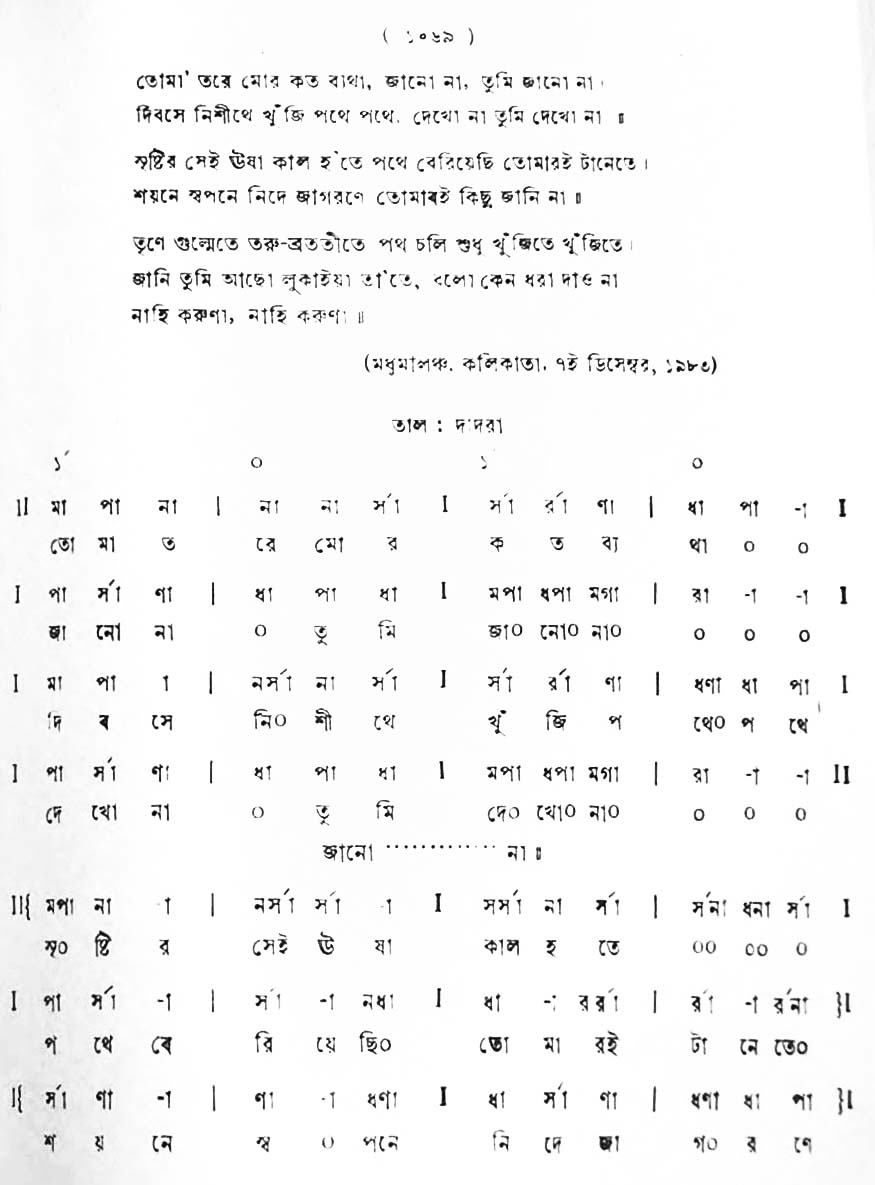 ( ১০৬৯ )
তোমা' তরে মোর কত ব্যথা, জানো না, তুমি জানো না।
দিবসে নিশীথে খুঁজি পথে পথে. দেখো না তুমি দেখো না ॥
সৃষ্টির সেই ঊষা কাল হ'তে পথে বেরিয়েছি তোমারই টানেতে।
শয়নে স্বপনে নিদে জাগরণে তোমাৰই কিছু জানি না ॥
তৃণে গুল্মেতে তরু-ব্রততীতে পথ চলি শুধু খুঁজিতে খুঁজিতে।
জানি তুমি আছো লুকাইয়া তা'তে, বলো কেন ধরা দাও না
নাহি করুণা, নাহি করুণা ॥
(মধুমালঞ্চ. কলিকাতা. ৭ই ডিসেম্বর, ১৯৮৩)
তাল : দাদরা
১´ ০ ১´ ০
II মা পা না | না না র্সা I র্সা র্রা ণা | ধা পা -া I
তো মা ত রে মো র ক ত ব্য থা ০ ০
I পা র্সা ণা | ধা পা ধা I মপা ধপা মগা | রা -া -া I
জা নো না ০ তু মি জা০ নো০ না০ ০ ০ ০
I মা পা া | নর্সা না র্সা I র্সা র্রা ণা | ধণা ধা পা I
দি ৰ সে নি০ শী থে খুঁ জি প থে০ প থে
I পা র্সা ণা | ধা পা ধা I মপা ধপা মগা | রা -া -া II
দে খো না ০ তু মি দে০ খো০ না০ ০ ০ ০
জানো ············· না ॥
II{ মপা না -া | নর্সা র্সা -া I সর্সা না র্সা | র্সনা ধনা র্সা I
সৃ০ ষ্টি র সেই ঊ ষা কাল হ তে ০০ ০০ ০
I পা র্সা -া | র্সা -া নধা I ধা -া রর্রা | র্রা -া র্রনা }I
প থে বে রি য়ে ছি০ তো মা রই টা নে তে০
I{ র্সা ণা -া | ণা -া ধণা I ধা র্সা ণা | ধণা ধা পা }I
শ য় নে স্ব ০ পনে নি দে জা গ০ র ণে